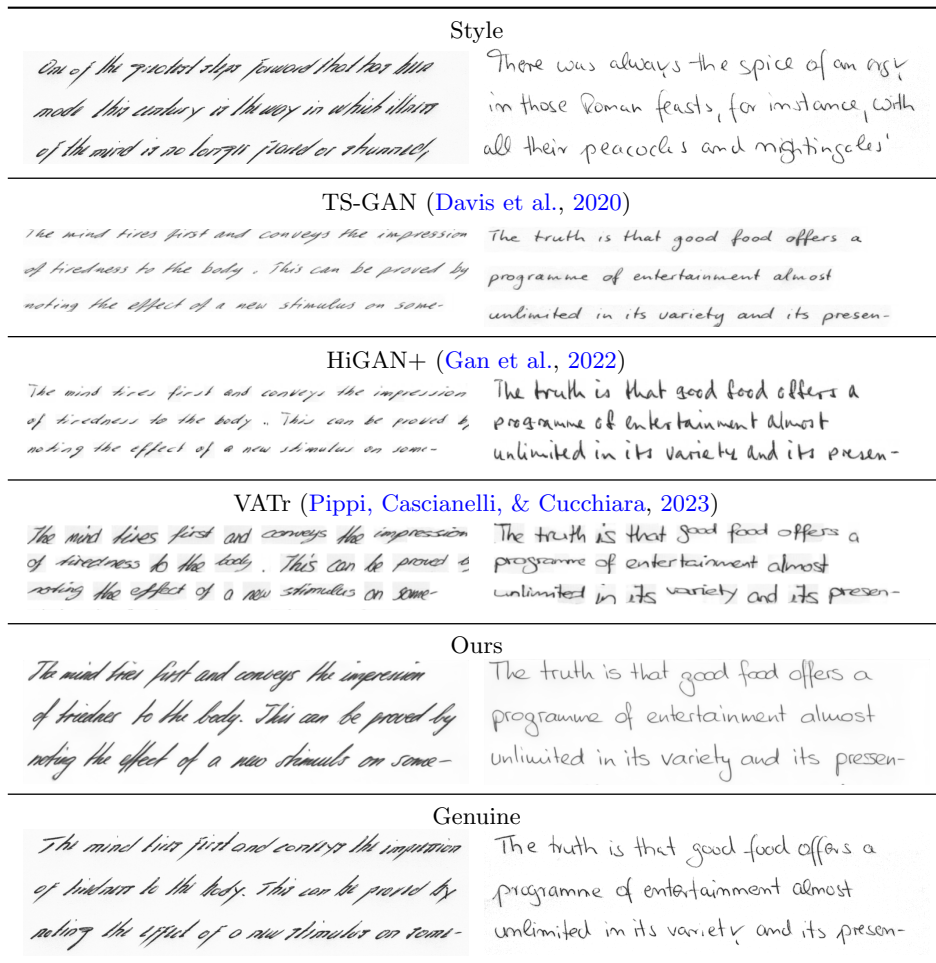 Style
One of the greatest steps forward that has been
made this century is the way in which illness
of the mind is no longer feared or shunned,
There was always the spice of an orgy
in those Roman feasts, for instance, with
all their peacocks and nightingales'
TS-GAN (Davis et al., 2020)
The mind tires first and conveys the impression
of tiredness to the body . This can be proved by
noting the effect of a new stimulus on some-
The truth is that good food offers a
programme of entertainment almost
unlimited in its variety and its presen-
HiGAN+ (Gan et al., 2022)
The mind tires first and conveys the impression
of tiredness to the body . This can be proved b
noting the effect of a new stimulus on some-
The truth is that good food offers a
programme of entertainment almost
unlimited in its variety and its presen-
VATr (Pippi, Cascianelli, & Cucchiara, 2023)
The mind tires first and conveys the impression
of tiredness to the body . This can be proved b
noting the effect of a new stimulus on some-
The truth is that good food offers a
programme of entertainment almost
unlimited in its variety and its presen-
Ours
The mind tries first and conveys the
of to the body. This can be proved by
noting the effect of a new stimuls on some-
The truth is that good food offers a
programme of entertainment almost
unlimited in its variety and its presen-
Genuine
The mind tires first and conveys the impression
of tiredness to the body. This can be proved by
noting the effect of a new stimulus on some-
The truth is that good food offers a
programme of entertainment almost
unlimited in its variety and its presen-